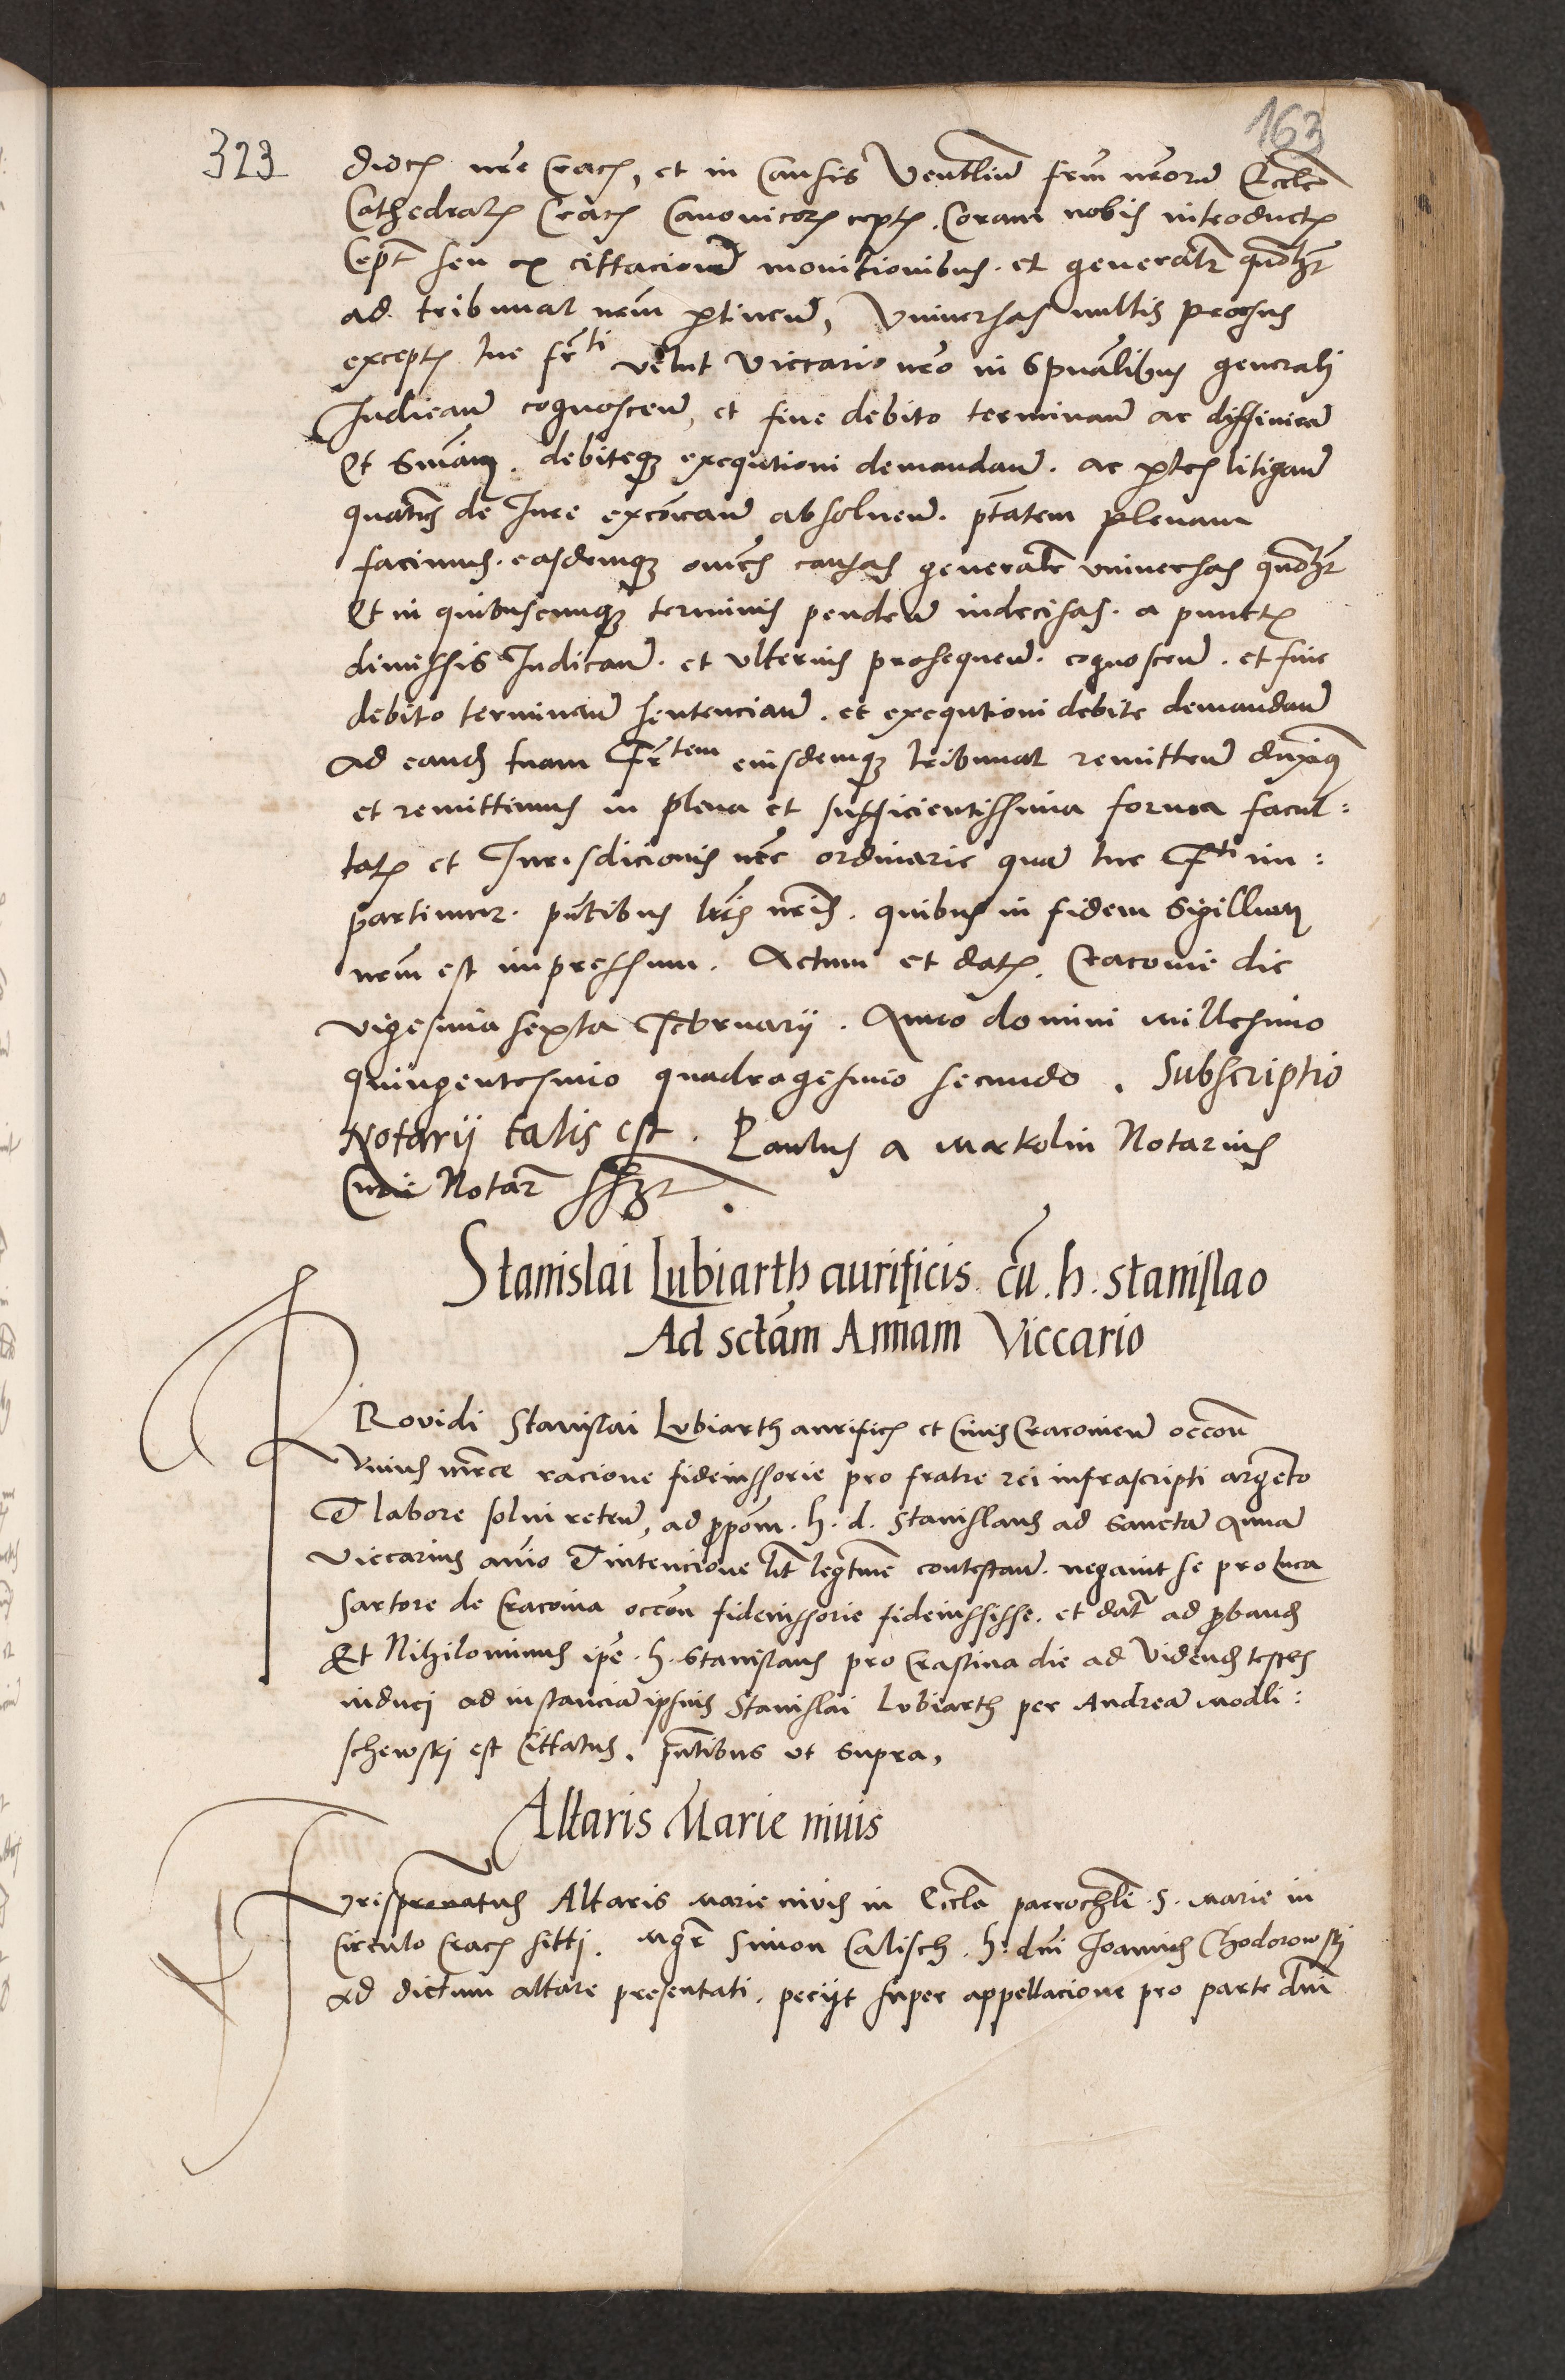 163
323
dioc nre Crac, et in Causis Ventlium frm nrorum Eccle
Cathedral Crac Canonicor cept. Coram nobis introduct
Cept seu ex cittacionum monitionibus. et generalr quodlt
ad tribunal nrm ptinen, Universas nullis prorsus
except tue frti velut Viccario nro in Spualibus generali
Iudican cognoscen, et fine debito terminan ac diffinien
Et Snian. debiteq exequtioni demandan. ac ptes litigan
quatus de Iure excoican absoluen. ptatem plenam
facimus. easdemq omnes causas generalr universas quodlt
Et in quibuscumq terminis penden indecisas. a punct
dimissis Iudican. et ulterius prosequen. cognoscen. et fine
debito terminan sentencian. et exequtioni debite demandan
Ad eand tuam Frtem eiusdemq tribunal remitten duxim
et remittimus in plena et sufficientissima forma facul:
tat et Iurisdicionis nre ordinarie quam tue Frti im:
partimur. pntibus lris nris. quibus in fidem Sigillum
nrm est impressum. Actum et dat. Cracovie die
vigesima sexta Februarii. Anno domini millesimo
quingentesimo quadragesimo secundo. Subscriptio
Notarii talis est. Paulus a Makolin Notarius
Curie Notar sszt.
Stanislai Lubiarth aurificis. cu. h. stanislao
Ad sctam Annam Viccario
Providi Stanislai Lubiarth aurific et Civis Cracovien occon
Unius mrce racione fideiussorie pro fratre rei infrascripti argento
Et labore solui reten, ad ppom. h. d. Stanislaus ad Sanctam Annam
Viccarius animo Et intencione lit legtime contestan. negavit se pro Luca
Sartore de Cracovia occon fideiussorie fideiussisse. et dat ad pband
Et Nihilominus ipe. h. Stanislaus pro Crastina die ad Vidend testes
induci ad instanciam ipsius Stanislai Lubiarth per Andream Modli:
schewski est Cittatus. pntibus ut supra,
Altaris Marie nivis
Jurispronatus Altaris Marie nivis in Eccla parrochli. S. Marie in
Circulo Crac sitti. Mgr Simon Calisch. h. dni Joannis Chodorowski
Ad dictum altare presentati. periit super appellacione pro parte dni